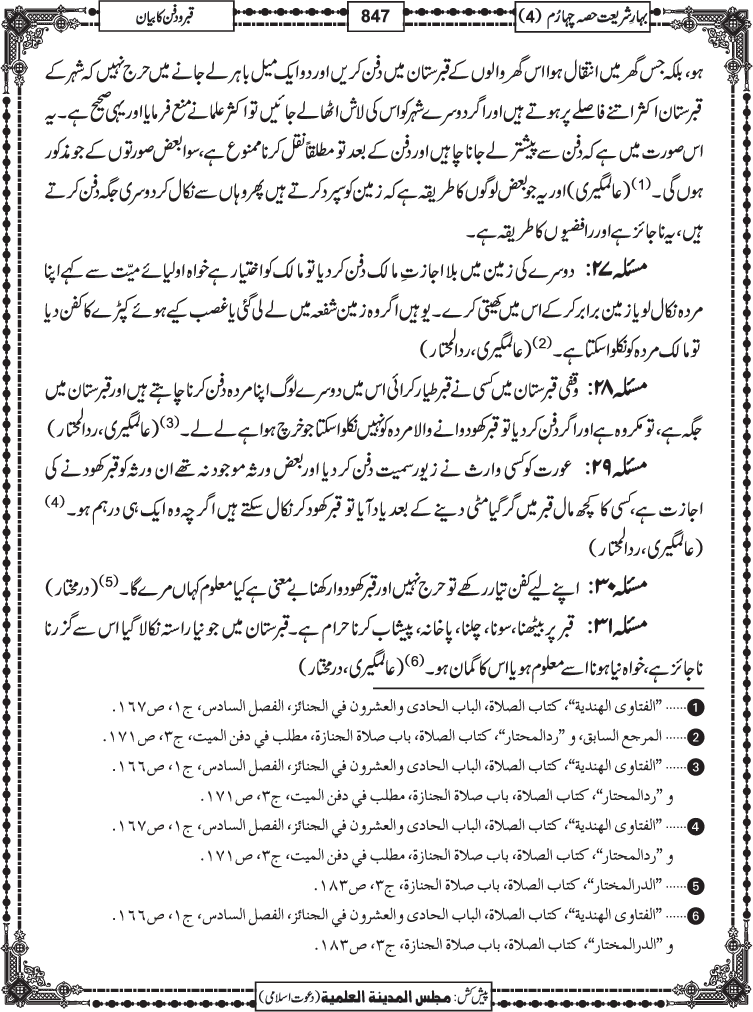 بہار شریعت حصہ چہارم (4)
847
قبر و دفن کا بیان
ہو، بلکہ جس گھر میں انتقال ہوا اس گھر والوں کے قبرستان میں دفن کریں اور دو ایک میل باہر لے جانے میں حرج نہیں کہ شہر کے
قبرستان اکثر اتنے فاصلے پر ہوتے ہیں اور اگر دوسرے شہر کو اس کی لاش اٹھا لے جائیں تو اکثر علما نے منع فرمایا اور یہی صحیح ہے۔ یہ
اس صورت میں ہے کہ دفن سے پیشتر لے جانا چاہیں اور دفن کے بعد تو مطلقاً نقل کرنا ممنوع ہے، سوا بعض صورتوں کے جو مذکور
ہوں گی۔(1) (عالمگیری) اور یہ جو بعض لوگوں کا طریقہ ہے کہ زمین کو سپرد کرتے ہیں پھر وہاں سے نکال کر دوسری جگہ دفن کرتے
ہیں، یہ ناجائز ہے اور رافضیوں کا طریقہ ہے۔
مسئلہ ۲۷: دوسرے کی زمین میں بلا اجازتِ مالک دفن کر دیا تو مالک کو اختیار ہے خواہ اولیائے میّت سے کہے اپنا
مردہ نکال لو یا زمین برابر کر کے اس میں کھیتی کرے۔ یوہیں اگر وہ زمین شفعہ میں لے لی گئی یا غصب کیے ہوئے کپڑے کا کفن دیا
تو مالک مردہ کو نکلوا سکتا ہے۔(2) (عالمگیری، ردالمحتار)
مسئلہ ۲۸: وقفی قبرستان میں کسی نے قبر طیار کرائی اس میں دوسرے لوگ اپنا مردہ دفن کرنا چاہتے ہیں اور قبرستان میں
جگہ ہے، تو مکروہ ہے اور اگر دفن کر دیا تو قبر کھودوانے والا مردہ کو نہیں نکلوا سکتا جو خرچ ہوا ہے لے لے۔(3) (عالمگیری، ردالمحتار)
مسئلہ ۲۹: عورت کو کسی وارث نے زیور سمیت دفن کر دیا اور بعض ورثہ موجود نہ تھے ان ورثہ کو قبر کھودنے کی
اجازت ہے، کسی کا کچھ مال قبر میں گر گیا مٹی دینے کے بعد یاد آیا تو قبر کھود کر نکال سکتے ہیں اگرچہ وہ ایک ہی درہم ہو۔(4)
(عالمگیری، ردالمحتار)
مسئلہ ۳۰: اپنے لیے کفن تیار رکھے تو حرج نہیں اور قبر کھودوا رکھنا بے معنی ہے کیا معلوم کہاں مرے گا۔(5) (درمختار)
مسئلہ ۳۱: قبر پر بیٹھنا، سونا، چلنا، پاخانہ، پیشاب کرنا حرام ہے۔ قبرستان میں جو نیا راستہ نکالا گیا اس سے گزرنا
ناجائز ہے، خواہ نیا ہونا اسے معلوم ہو یا اس کا گمان ہو۔(6) (عالمگیری، درمختار)
1 ...... ”الفتاوی الھندیۃ“، کتاب الصلاۃ، الباب الحادی والعشرون في الجنائز، الفصل السادس، ج۱، ص۱۶۷.
2 ...... المرجع السابق، و ”ردالمحتار“، کتاب الصلاۃ، باب صلاۃ الجنازۃ، مطلب في دفن الميت، ج۳، ص۱۷۱.
3 ...... ”الفتاوی الھندیۃ“، کتاب الصلاۃ، الباب الحادی والعشرون في الجنائز، الفصل السادس، ج۱، ص۱۶۶.
و ”ردالمحتار“، کتاب الصلاۃ، باب صلاۃ الجنازۃ، مطلب في دفن الميت، ج۳، ص۱۷۱.
4 ...... ”الفتاوی الھندیۃ“، کتاب الصلاۃ، الباب الحادی والعشرون في الجنائز، الفصل السادس، ج۱، ص۱۶۷.
و ”ردالمحتار“، کتاب الصلاۃ، باب صلاۃ الجنازۃ، مطلب في دفن الميت، ج۳، ص۱۷۱.
5 ...... ”الدرالمختار“، کتاب الصلاۃ، باب صلاۃ الجنازۃ، ج۳، ص۱۸۳.
6 ...... ”الفتاوی الھندیۃ“، کتاب الصلاۃ، الباب الحادی والعشرون في الجنائز، الفصل السادس، ج۱، ص۱۶۶.
و ”الدرالمختار“، کتاب الصلاۃ، باب صلاۃ الجنازۃ، ج۳، ص۱۸۳.
پیش کش: مجلس المدینۃ العلمیۃ (دعوت اسلامی)